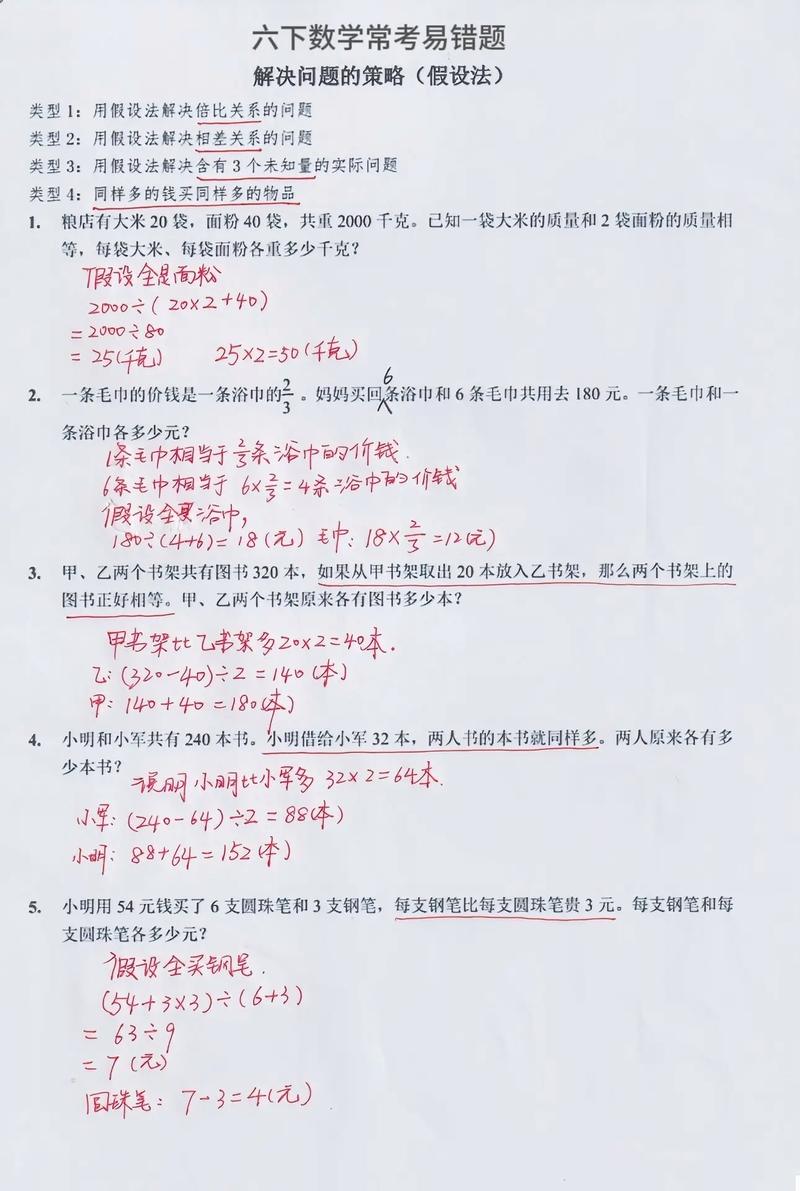 六下数学常考易错题
解决问题的策略（假设法）
类型 1：用假设法解决倍比关系的问题
类型 2：用假设法解决相差关系的问题
类型 3：用假设法解决含有 3 个未知量的实际问题
类型 4：同样多的钱买同样多的物品
1. 粮店有大米 20 袋，面粉 40 袋，共重 2000 千克。已知一袋大米的质量和 2 袋面粉的质量相
等，每袋大米、每袋面粉各重多少千克？
假设全是面粉
2000÷(20×2+40)
=2000÷80
=25(千克) 25×2=50(千克)
2. 一条毛巾的价钱是一条浴巾的2/3。妈妈买回6条浴巾和 6 条毛巾共用去 180 元。一条毛巾和一
条浴巾各多少元？
1条毛巾相当于2/3条浴巾的价钱.
6条毛巾相当于 6×2/3=4条浴巾的价钱
假设全是浴巾,
180÷(4+6)=18(元) 毛巾: 18×2/3=12(元)
3. 甲、乙两个书架共有图书 320 本，如果从甲书架取出 20 本放入乙书架，那么两个书架上的
图书正好相等。甲、乙两个书架原来各有图书多少本？
甲书架比乙书架多20×2=40本.
乙: (320-40)÷2=140(本)
甲: 140+40=180(本)
4. 小明和小军共有 240 本书。小明借给小军 32 本，两人书的本书就同样多。两人原来各有多
少本书？
说明小明比小军多 32×2=64本.
小军: (240-64)÷2=88(本)
小明: 88+64=152(本)
5. 小明用 54 元钱买了 6 支圆珠笔和 3 支钢笔，每支钢笔比每支圆珠笔贵 3 元。每支钢笔和每
支圆珠笔各多少元？
假设全买钢笔.
(54+3×3)÷(6+3)
=63÷9
=7(元)
圆珠笔: 7-3=4(元)